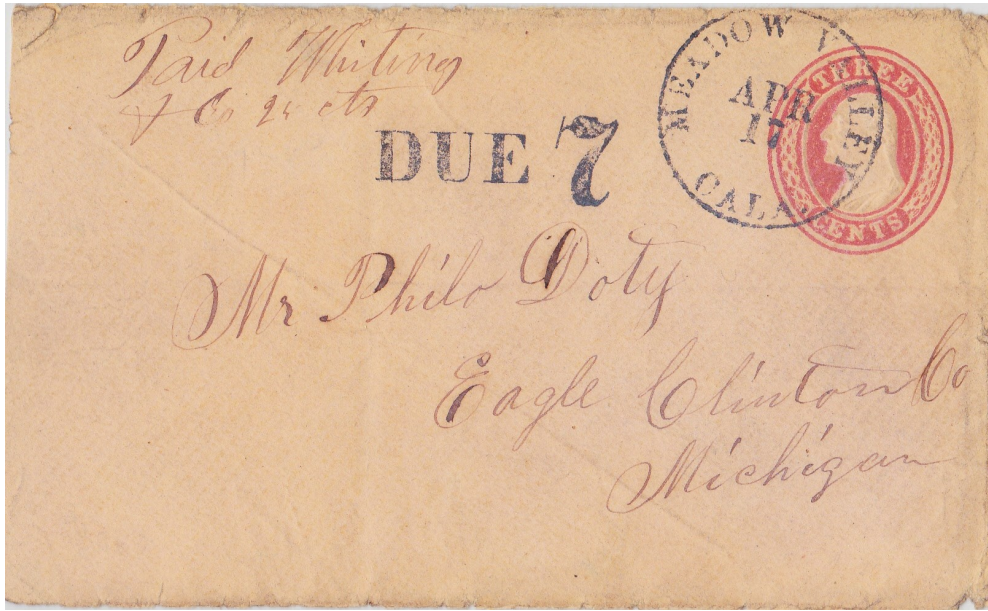 Paid Whiting
& Co 25 cts
DUE 7
MEADOW VALLEY
APR
17
CALA.
THREE
CENTS
Mr Philo Doty
Eagle Clinton Co
Michigan